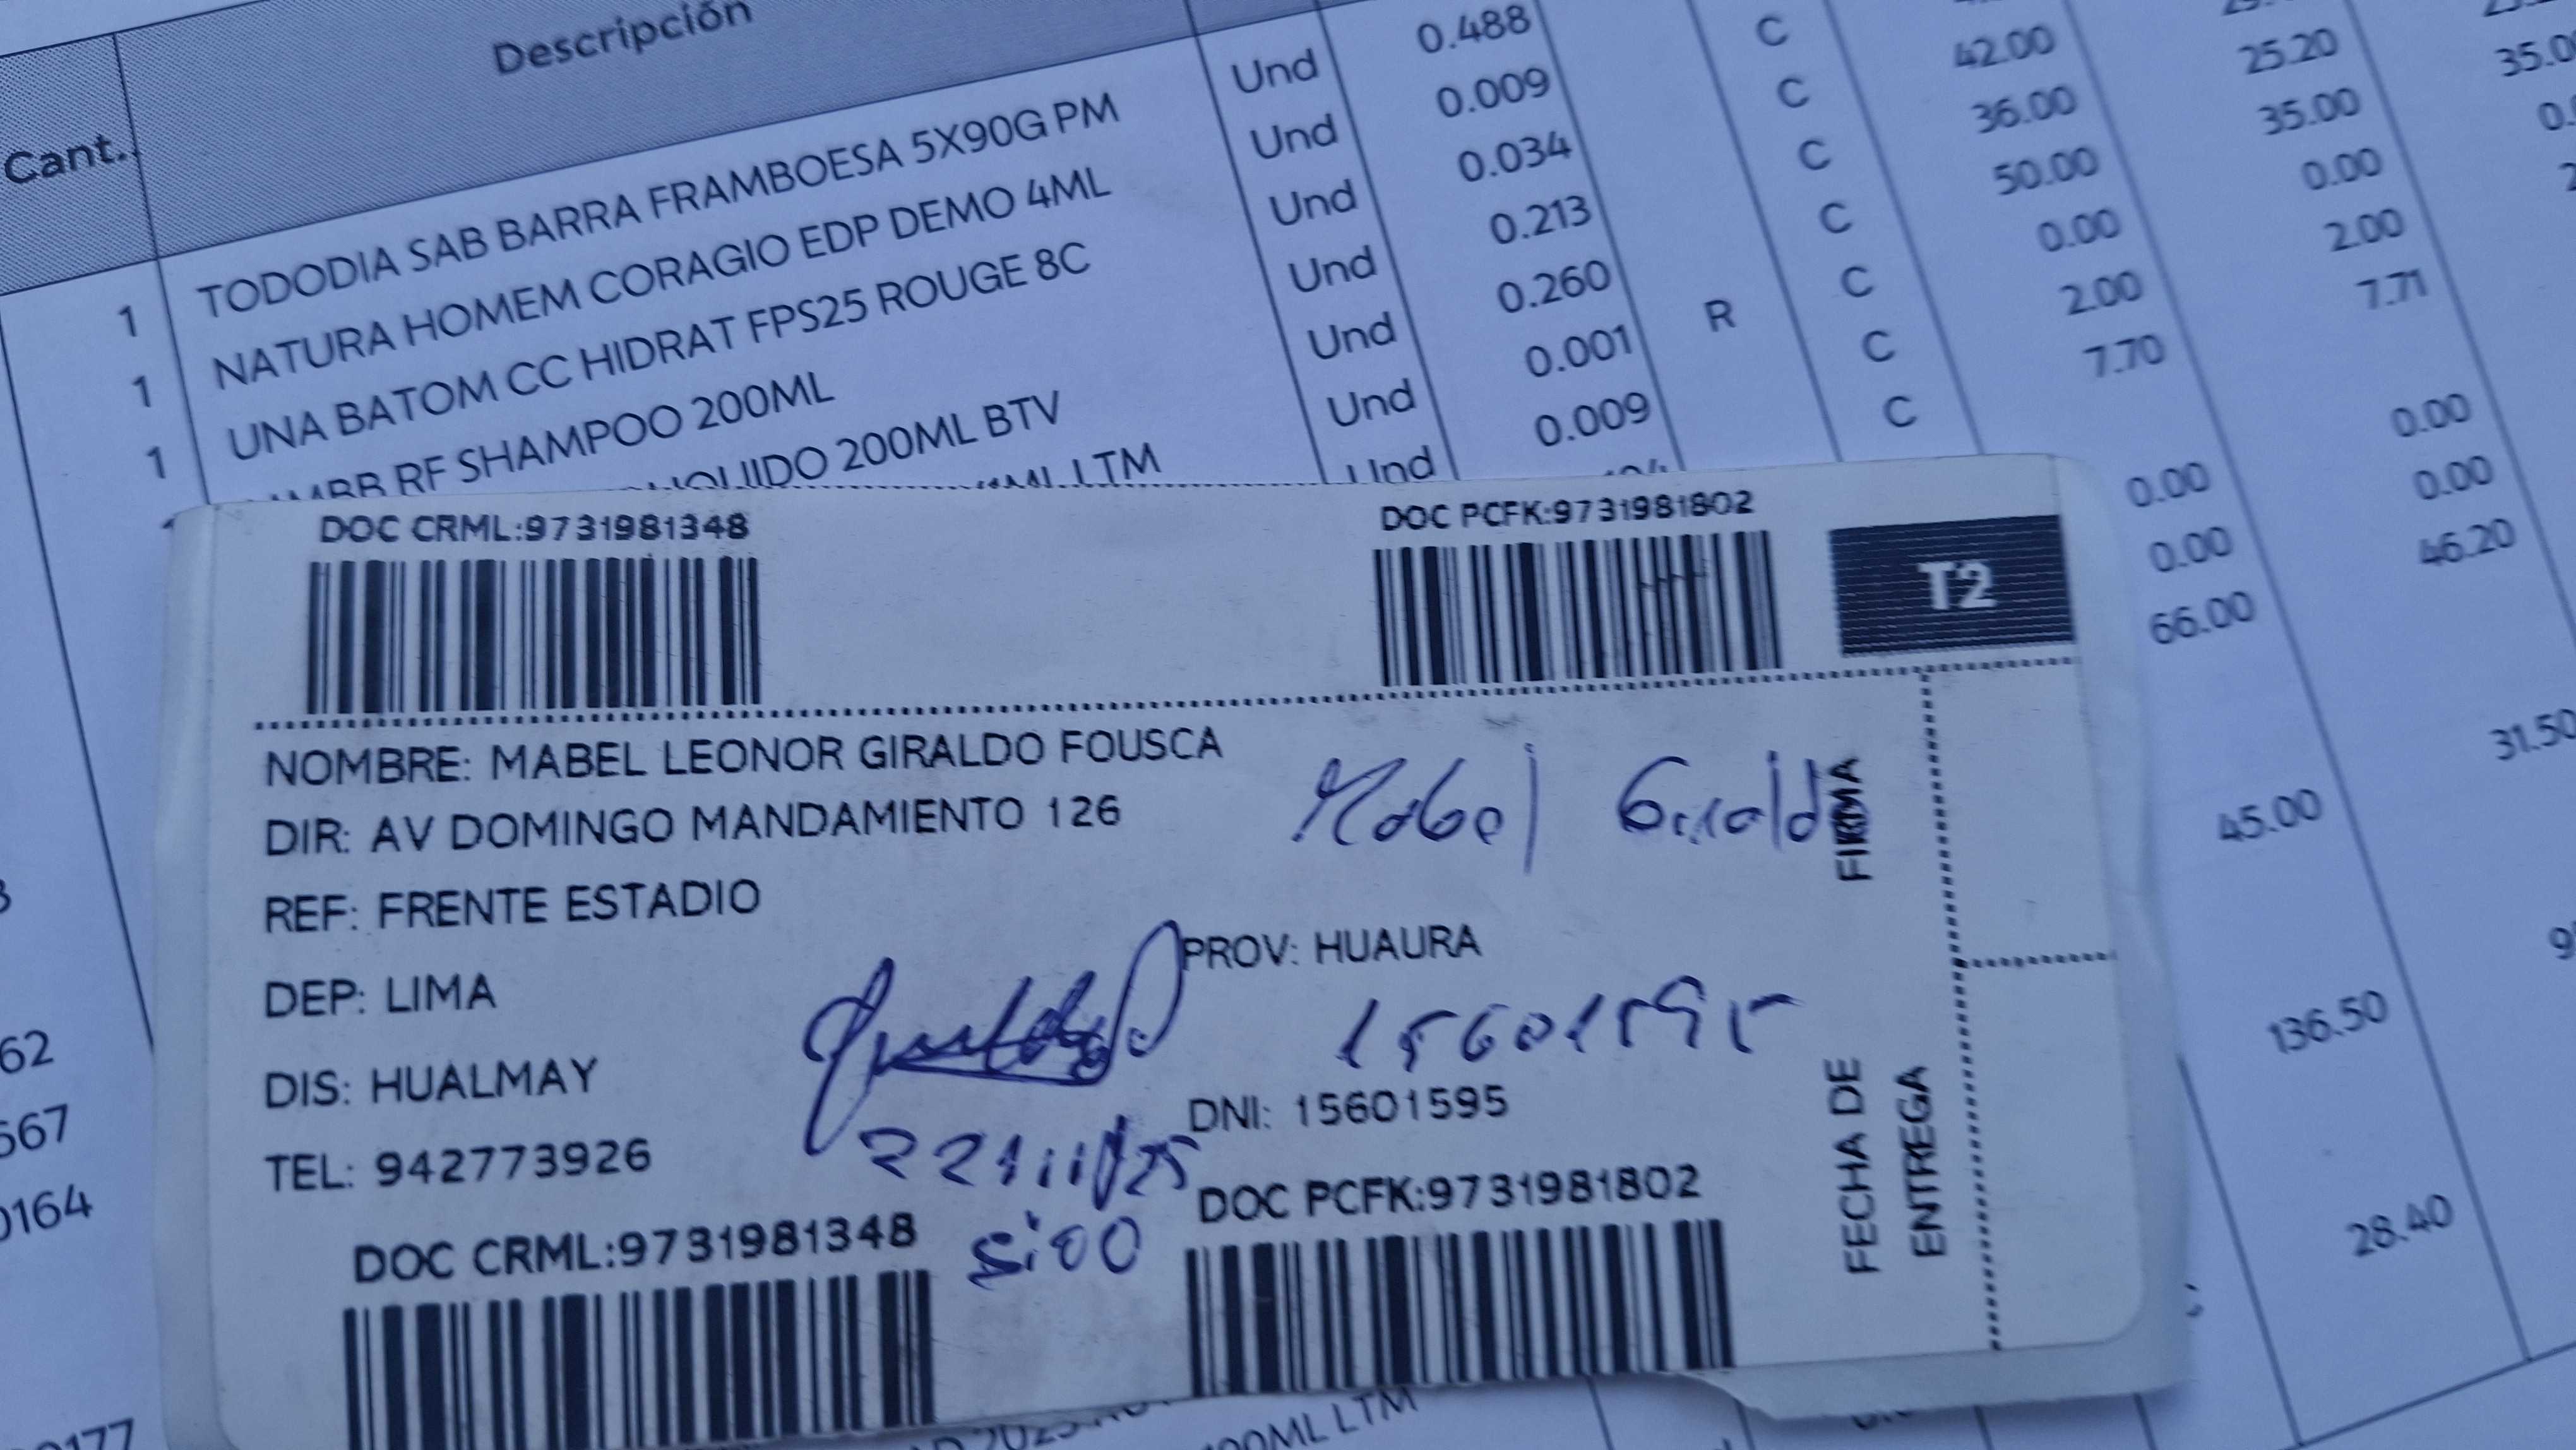 Cant. Descripción
1 TODODIA SAB BARRA FRAMBOESA 5X90G PM Und 0.488 C 42.00 25.20 
1 NATURA HOMEM CORAGIO EDP DEMO 4ML Und 0.009 C 36.00 35.00
1 UNA BATOM CC HIDRAT FPS25 ROUGE 8C Und 0.034 C 50.00 0.00
RF SHAMPOO 200ML Und 0.213 C 0.00 2.00
200ML BTV Und 0.260 C 2.00 7.71
LTM Und 0.001 R C 7.70
Und 0.009 C
0.00 0.00
0.00 0.00
66.00 46.20
45.00 31.50
136.50
28.40
DOC CRML:9731981348 DOC PCFK:9731981802
T2
NOMBRE: MABEL LEONOR GIRALDO FOUSCA
Mabel Giraldo
FIRMA
DIR: AV DOMINGO MANDAMIENTO 126
REF: FRENTE ESTADIO
DEP: LIMA PROV: HUAURA
15601595
DIS: HUALMAY DNI: 15601595
TEL: 942773926
FECHA DE
ENTREGA
DOC CRML:9731981348 DOC PCFK:9731981802